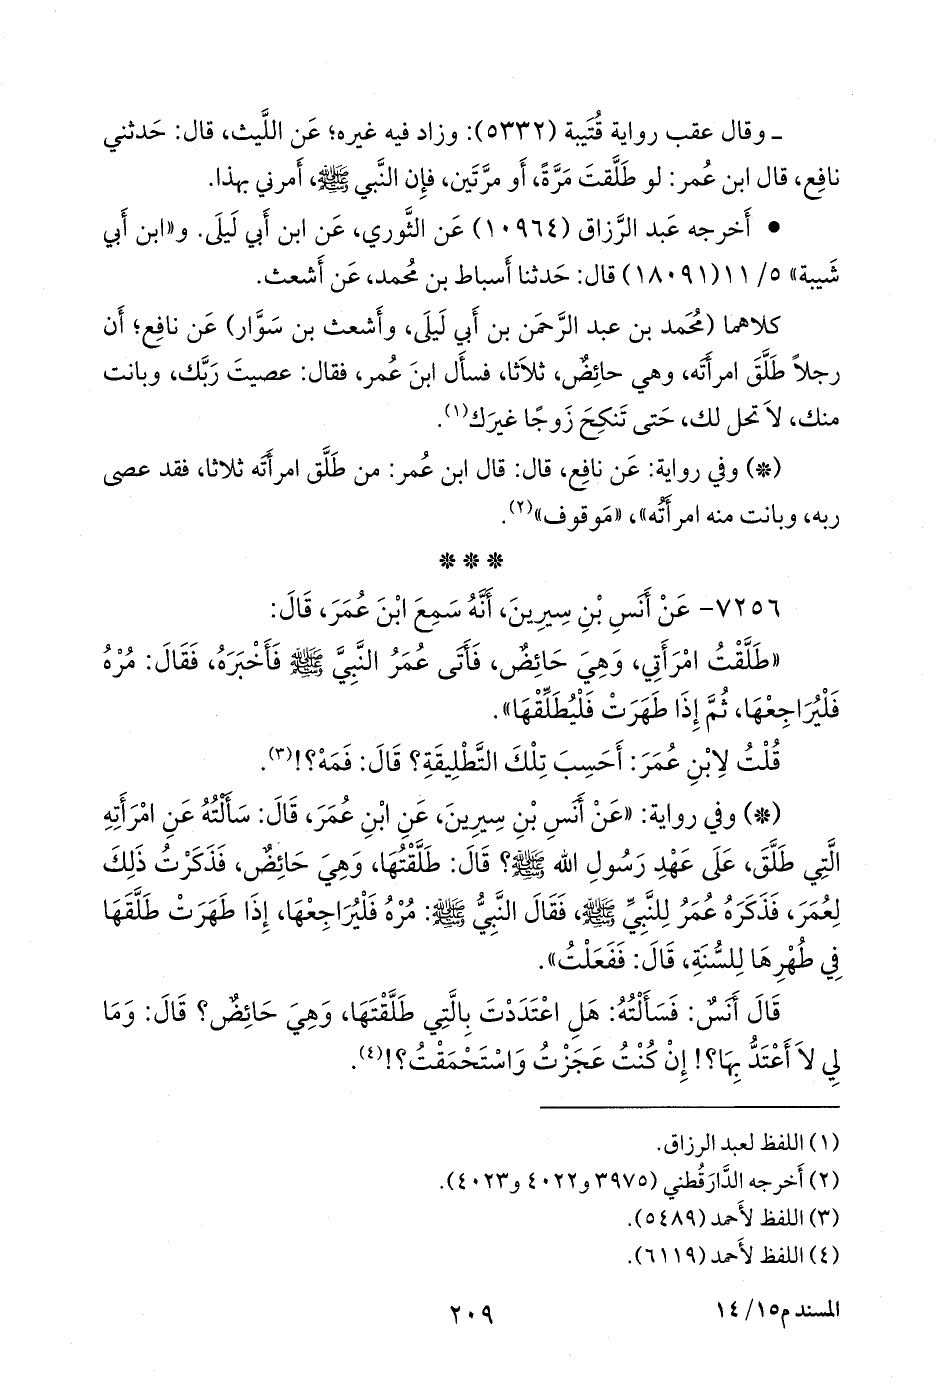 ـ وقال عقب رواية قُتَيبة (٥٣٣٢): وزاد فيه غيره؛ عَن اللَّيث، قال: حَدثني
نافِع، قال ابن عُمر: لو طَلَّقتَ مَرَّةً، أَو مرَّتَين، فإِن النَّبي ﷺ، أَمرني بهذا.
• أَخرجه عَبد الرَّزاق (١٠٩٦٤) عَن الثَّوري، عَن ابن أَبي لَيلَى. و«ابن أَبي
شَيبة» ٥/ ١١(١٨٠٩١) قال: حَدثنا أَسباط بن مُحمد، عَن أَشعث.
كلاهما (مُحَمد بن عبد الرَّحمَن بن أَبي لَيلَى، وأَشعث بن سَوَّار) عَن نافِع؛ أَن
رجلاً طَلَّقَ امرأَتَه، وهي حائِضٌ، ثلاَثا، فسأَل ابنَ عُمر، فقال: عصيتَ رَبَّك، وبانت
منك، لاَ تحل لك، حَتى تَنكِحَ زَوجًا غيرَك(١).
(*) وفي رواية: عَن نافِع، قال: قال ابن عُمر: من طَلَّق امرأَته ثلاثا، فقد عصى
ربه، وبانت منه امرأَتُه»، «مَوقوف»(٢).
* * *
٧٢٥٦- عَنْ أَنَسِ بْنِ سِيرِينَ، أَنَّهُ سَمِعَ ابْنَ عُمَرَ، قَالَ:
«طَلَّقْتُ امْرَأَتِي، وَهِيَ حَائِضٌ، فَأَتَى عُمَرُ النَّبِيَّ ﷺ فَأَخْبَرَهُ، فَقَالَ: مُرْهُ
فَلْيُرَاجِعْهَا، ثُمَّ إِذَا طَهَرَتْ فَلْيُطَلِّقْهَا».
قُلْتُ لِابْنِ عُمَرَ: أَحَسِبَ تِلْكَ التَّطْلِيقَةِ؟ قَالَ: فَمَهْ؟!(٣).
(*) وفي رواية: «عَنْ أَنَسِ بْنِ سِيرِينَ، عَنِ ابْنِ عُمَرَ، قَالَ: سَأَلْتُهُ عَنِ امْرَأَتِهِ
الَّتِي طَلَّقَ، عَلَى عَهْدِ رَسُولِ الله ﷺ؟ قَالَ: طَلَّقْتُهَا، وَهِيَ حَائِضٌ، فَذَكَرْتُ ذَلِكَ
لِعُمَرَ، فَذَكَرَهُ عُمَرُ لِلنَّبِيِّ ﷺ، فَقَالَ النَّبِيُّ ﷺ: مُرْهُ فَلْيُرَاجِعْهَا، إِذَا طَهَرَتْ طَلَّقَهَا
فِي طُهْرِهَا لِلسُّنَةِ، قَالَ: فَفَعَلْتُ».
قَالَ أَنَسٌ: فَسَأَلْتُهُ: هَلِ اعْتَدَدْتَ بِالَّتِي طَلَّقْتَهَا، وَهِيَ حَائِضٌ؟ قَالَ: وَمَا
لِي لاَ أَعْتَدُّ بِهَا؟! إِنْ كُنْتُ عَجَزْتُ وَاسْتَحْمَقْتُ؟!(٤).
(١) اللفظ لعبد الرزاق.
(٢) أَخرجه الدَّارَقُطني (٣٩٧٥ و٤٠٢٢ و٤٠٢٣).
(٣) اللفظ لأَحمد (٥٤٨٩).
(٤) اللفظ لأَحمد (٦١١٩).
المسند م١٤/١٥
٢٠٩